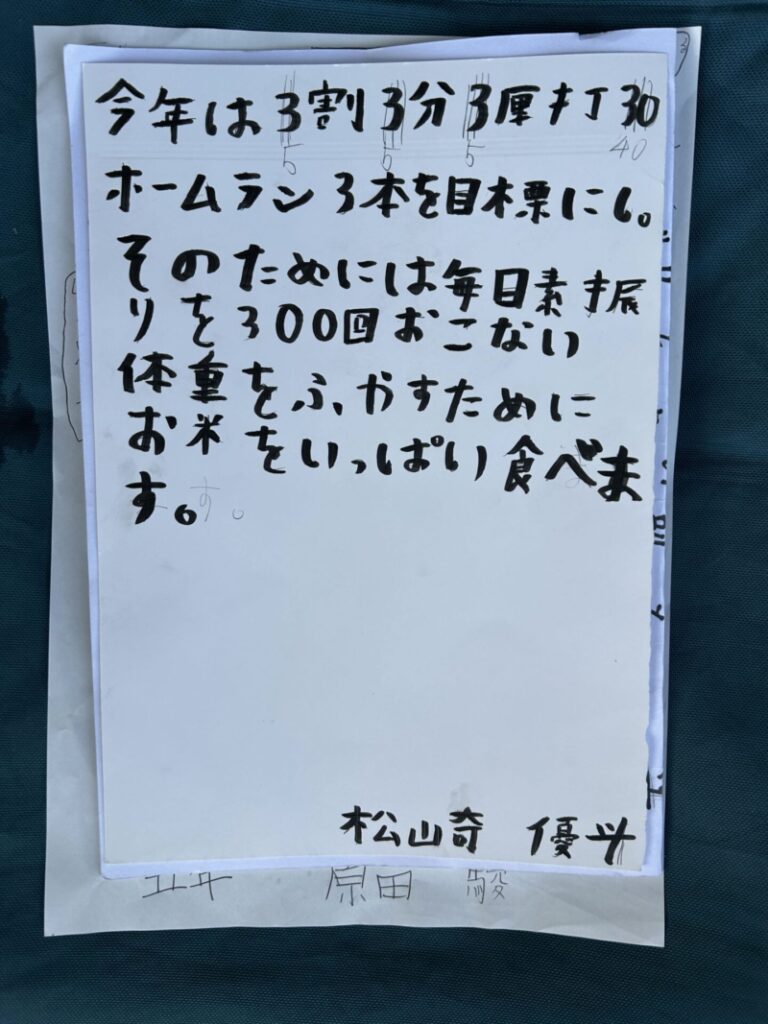 今年は3割3分3厘打30
5 5 5 40
ホームラン3本を目標に。
そのためには毎日素振
りを300回おこない
体重をふやすために
お米をいっぱい食べま
す。す。
松山奇 優斗
五年 原田 駿